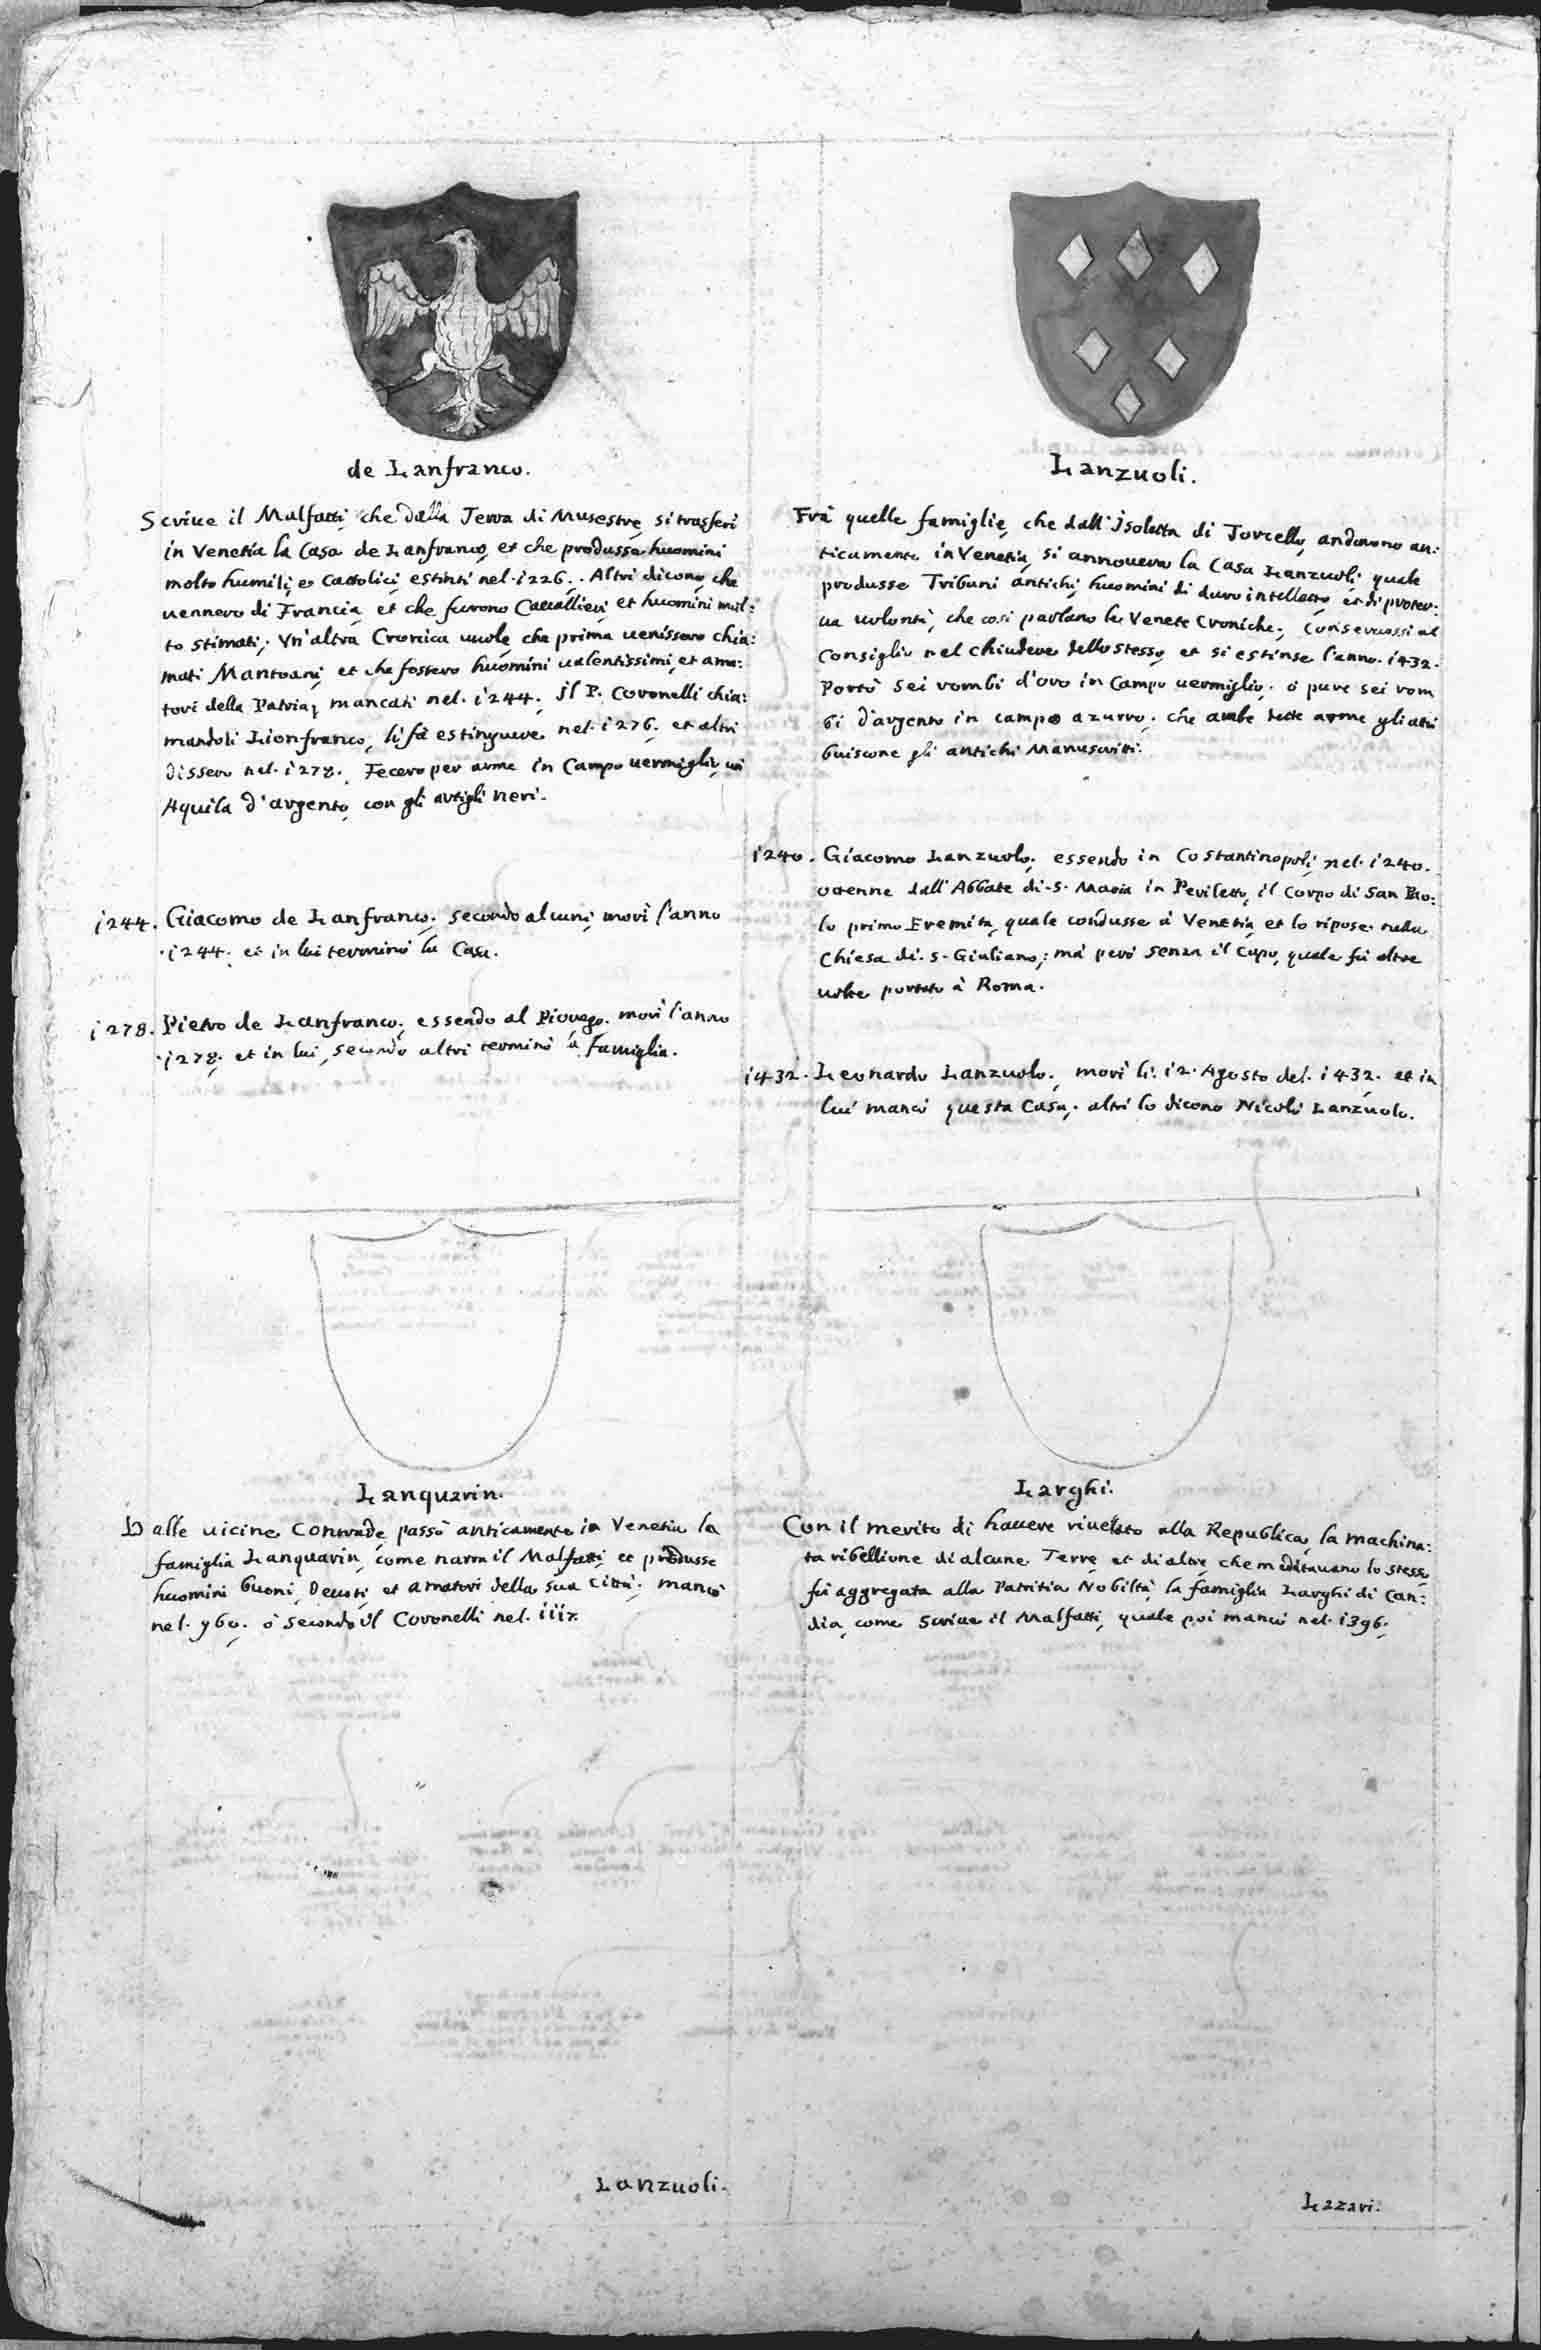 de Lanfranco.
Scriue il Malfatti, che dalla Terra di Musestre, si trasferi
in Venetia la Casa de Lanfranco, et che produsse huomini
molto humili, et Cattolici, estinti nel. 1226. . Altri dicono, che
uennero di Francia, et che furono Cauallieri, et huomini mol:
to stimati; Vn'altra Cronica uuole, che prima uenissero chia:
mati Mantoani, et che fossero huomini ualentissimi, et ama:
tori della Patria, mancati nel. 1244. il P. Coronelli chia:
mandoli Lionfranco, li fà estinguere nel. 1276. et altri
dissero nel. 1278. Fecero per arme in Campo uermiglio, un
Aquila d'argento, con gli artigli neri.
1244. Giacomo de Lanfranco, secondo alcuni, morì l'anno
.1244. et in lui terminò la Casa.
1278. Pietro de Lanfranco, essendo al Piouego. morì l'anno
.1278. et in lui, secondo altri terminò la famiglia.
Lanquarin.
Dalle uicine Contrade, passò anticamente in Venetia la
famiglia Lanquarin, come narra il Malfatti, et produsse
huomini buoni, Deuoti, et amatori della sua Città; mancò
nel. 960. ò secondo il Coronelli nel. 1117.
Lanzuoli.
Lanzuoli.
Frà quelle famiglie, che dall'Isoletta di Torcello, andorono an:
ticamente in Venetia, si annouera la Casa Lanzuoli, quale
produsse Tribuni antichi, huomini di duro intelletto, et di proter:
ua uolontà, che così parlano le Venete Croniche; Conseruossi al
Consiglio nel chiudere dello stesso, et si estinse l'anno. 1432.
Portò sei rombi d'oro in Campo uermiglio. ò pure sei rom
bi d'argento in campo azurro. che ambe dette arme gli attri
buiscono gli antichi Manuscritti.
1240. Giacomo Lanzuolo, essendo in Costantinopoli, nel. 1240.
ottenne dall'Abbate di. S. Maria in Periletto, il Corpo di San Pao:
lo primo Eremita, quale condusse à Venetia, et lo ripose nella
Chiesa di. S. Giuliano; mà però senza il Capo, quale fù altre
uolte portato à Roma.
1432. Leonardo Lanzuolo, morì li. 12. Agosto del. 1432. et in
lui mancò questa Casa; altri lo dicono Nicolò Lanzuolo.
Larghi.
Con il merito di hauere riuelato alla Republica, la machina:
ta ribellione di alcune Terre, et di altre, che meditauano lo stesso,
fù aggregata alla Patritia Nobiltà, la famiglia Larghi di Can:
dia, come scriue il Malfatti, quale poi mancò nel. 1396.
Lazari.